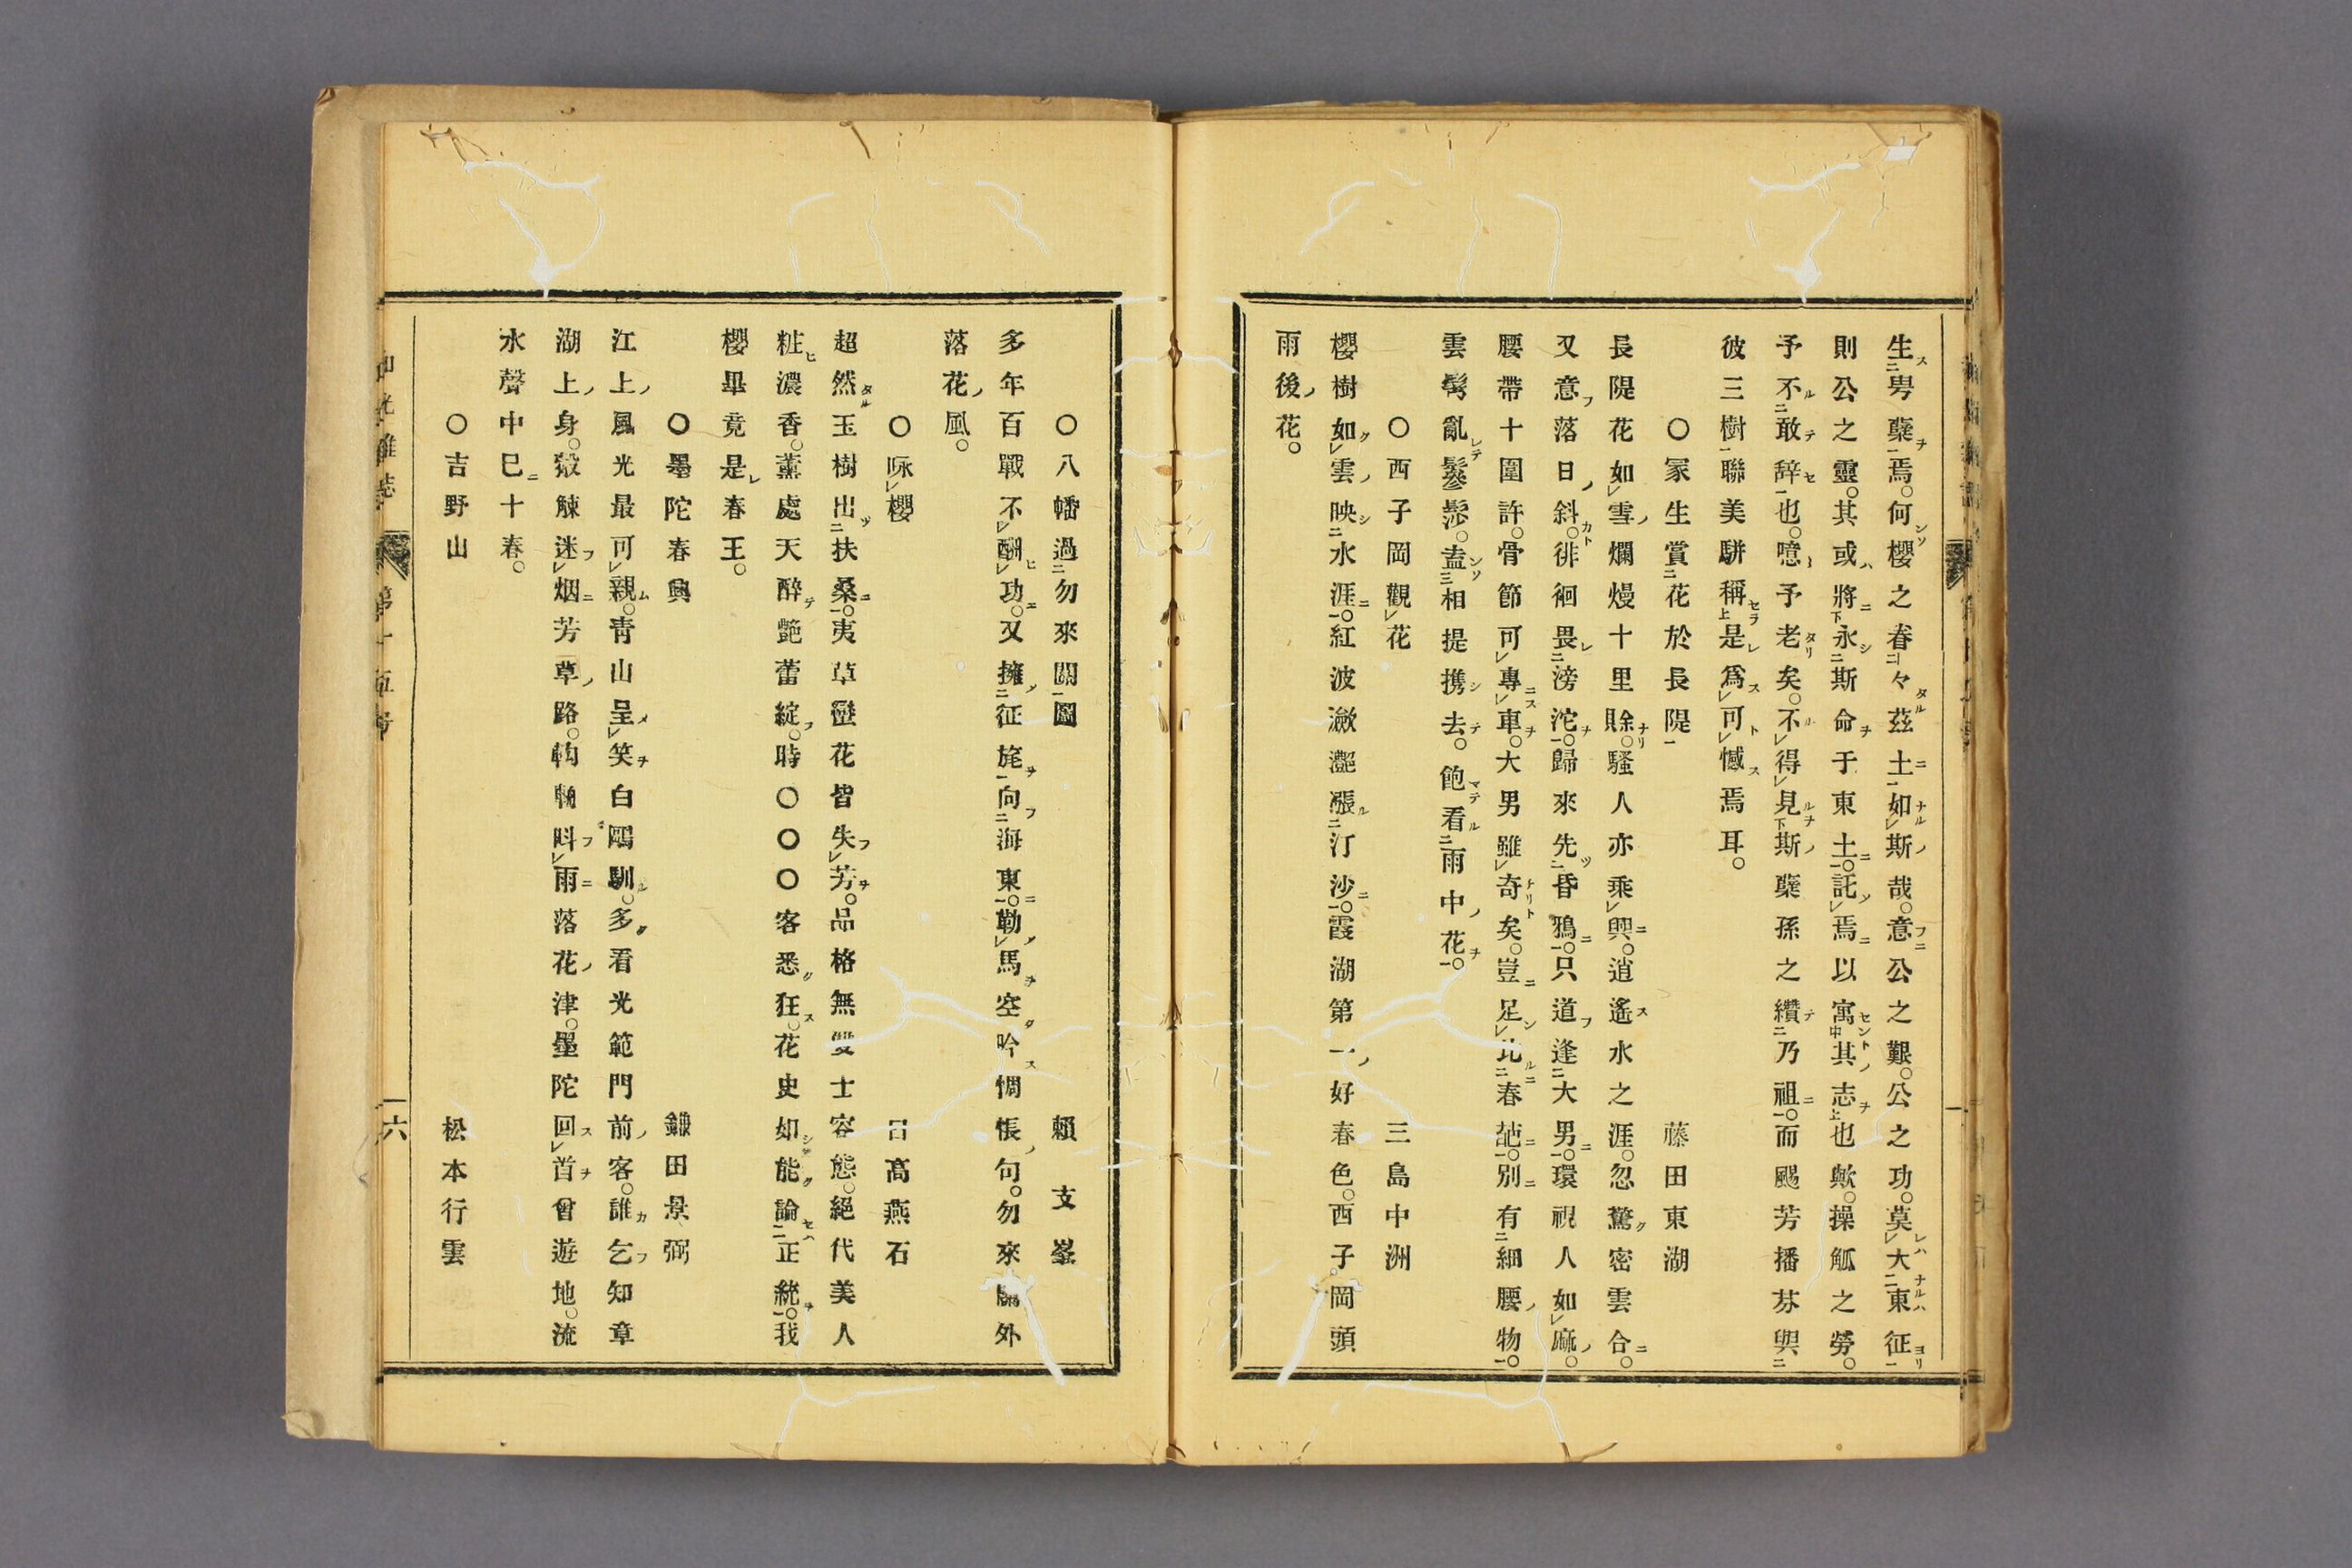 生甥蘖焉。何櫻之春々茲土如斯哉。意公之艱。公之功。莫大東征
則公之靈。其或將永斯命于東土。託焉以寓其志也歟。操觚之勞。
予不敢辞也。噫予老矣。不得見斯蘖孫之纘乃祖。而颺芳播芬與
彼三樹聯美駢稱是爲可憾焉耳。
〇冢生賞花於長隄 藤田東湖
長隄花如雪爛熳十里賒。騷人亦乘興。逍遙水之涯。忽驚密雲合。
又意落日斜。徘徊畏滂沱。歸來先昏鴉。只道逢大男。環視人如麻。
腰帶十圍許。骨節可專車。大男雖奇矣。豈足比春葩。別有細腰物。
雲鬢亂鬖髿。盍相提携去。飽看雨中花。
〇西子岡觀花 三島中洲
櫻樹如雲映水涯。紅波瀲灔漲汀沙。霞湖第一好春色。西子岡頭
雨後花。
〇八幡過勿來關圖 賴支峯
多年百戰不酬功。又擁征旄向海東。勒馬空吟惆悵句。勿來關外
落花風。
〇咏櫻 日高燕石
超然玉樹出扶桑。夷草蠻花皆失芳。品格無雙士容態。絕代美人
粧濃香。薰處天醉艶蕾綻。時〇〇〇客悉狂。花史如能論正統。我
櫻畢竟是春王。
〇墨陀春興 鍛田景弼
江上風光最可親。靑山呈笑白鷗馴。多看光範門前客。誰乞知章
湖上身。縠觫迷烟芳草路。鞫輈呌雨落花津。墨陀回首曾遊地。流
水聲中已十春。
〇吉野山 松本行雲
第十五号
一六